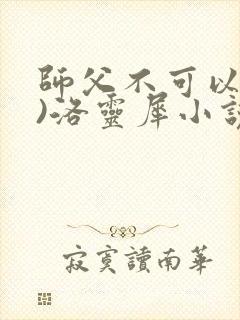 師父不可以
)洛靈犀小說
寂寞讀南華